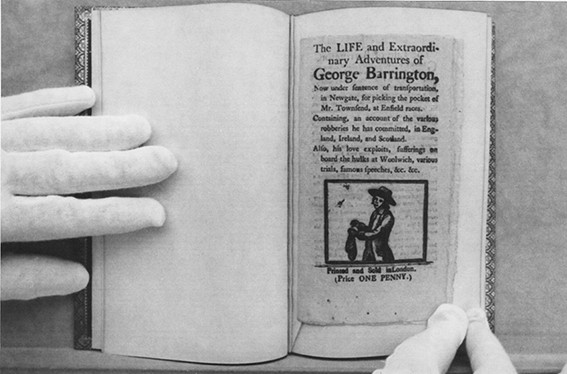 The LIFE and Extraordi-
nary Adventures of
George Barrington,
Now under sentence of transportation,
in Newgate, for picking the pocket of
Mr. Townsend, at Enfield races.
Containing, an account of the various
robberies he has committed, in Eng-
land, Ireland, and Scotland.
Also, his love exploits, sufferings on
board the hulks at Woolwich, various
trials, famous speeches, &c. &c.
Printed and Sold in London.
(Price ONE PENNY.)